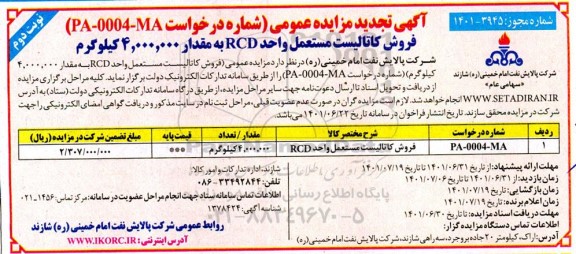 شماره مجوز: ۳۹۴۵-۱۴۰۱
آگهی تجدید مزایده عمومی (شماره درخواست PA-0004-MA)
نوبت دوم
فروش کاتالیست مستعمل واحد RCD به مقدار ۴,۰۰۰,۰۰۰ کیلوگرم
شرکت پالایش نفت امام خمینی (ره) شازند
«سهامی عام»
شرکت پالایش نفت امام خمینی (ره) در نظر دارد مزایده عمومی (فروش کاتالیست مستعمل واحد RCD به مقدار ۴,۰۰۰,۰۰۰
کیلوگرم) (شماره درخواست PA-0004-MA) را از طریق سامانه تدارکات الکترونیک دولت برگزار نماید. کلیه مراحل برگزاری مزایده
از دریافت و تحویل اسناد تا ارسال دعوتنامه جهت سایر مراحل مزایده، از طریق درگاه سامانه تدارکات الکترونیکی دولت (ستاد) به آدرس
WWW.SETADIRAN.IR انجام خواهد شد. لازم است مزایده گران در صورت عدم عضویت قبلی، مراحل ثبت نام در سایت مذکور و دریافت گواهی امضای الکترونیکی را جهت
شرکت در مزایده محقق سازند. تاریخ انتشار فراخوان در سامانه تاریخ ۱۴۰۱/۰۶/۲۲ می‌باشد.
ردیف شماره درخواست شرح مختصر کالا مقدار / تعداد قیمت پایه مبلغ تضمین شرکت در مزایده (ریال)
۱ PA-0004-MA فروش کاتالیست مستعمل واحد RCD ۴,۰۰۰,۰۰۰ کیلوگرم ۲/۳۰۷/۰۰۰/۰۰۰
مهلت ارائه پیشنهاد: از تاریخ ۱۴۰۱/۰۶/۳۱ تا تاریخ ۱۴۰۱/۰۷/۱۹
زمان بازدید: از تاریخ ۱۴۰۱/۰۶/۳۱ تا تاریخ ۱۴۰۱/۰۷/۰۶
زمان بازگشایی: تاریخ ۱۴۰۱/۰۷/۱۹
زمان اعلام برنده: تاریخ ۱۴۰۱/۰۷/۱۹
مهلت دریافت اسناد مزایده: تا تاریخ ۱۴۰۱/۰۶/۳۰
اطلاعات تماس دستگاه مزایده گزار:
آدرس: اراک، کیلومتر ۲۰ جاده بروجرد، سه راهی شازند، شرکت پالایش نفت امام خمینی (ره)
شازند، اداره تدارکات و امور کالا:
تلفن: ۳۳۴۹۲۸۴۴-۰۸۶
اطلاعات تماس سامانه ستاد جهت انجام مراحل عضویت در سامانه: مرکز تماس ۱۴۵۶-۰۲۱
شناسه آگهی: ۱۳۷۸۴۲۴
روابط عمومی شرکت پالایش نفت امام خمینی (ره) شازند
آدرس اینترنتی: WWW.IKORC.IR
۰۲۱-۸۸۳۴۹۶۷۰-۵